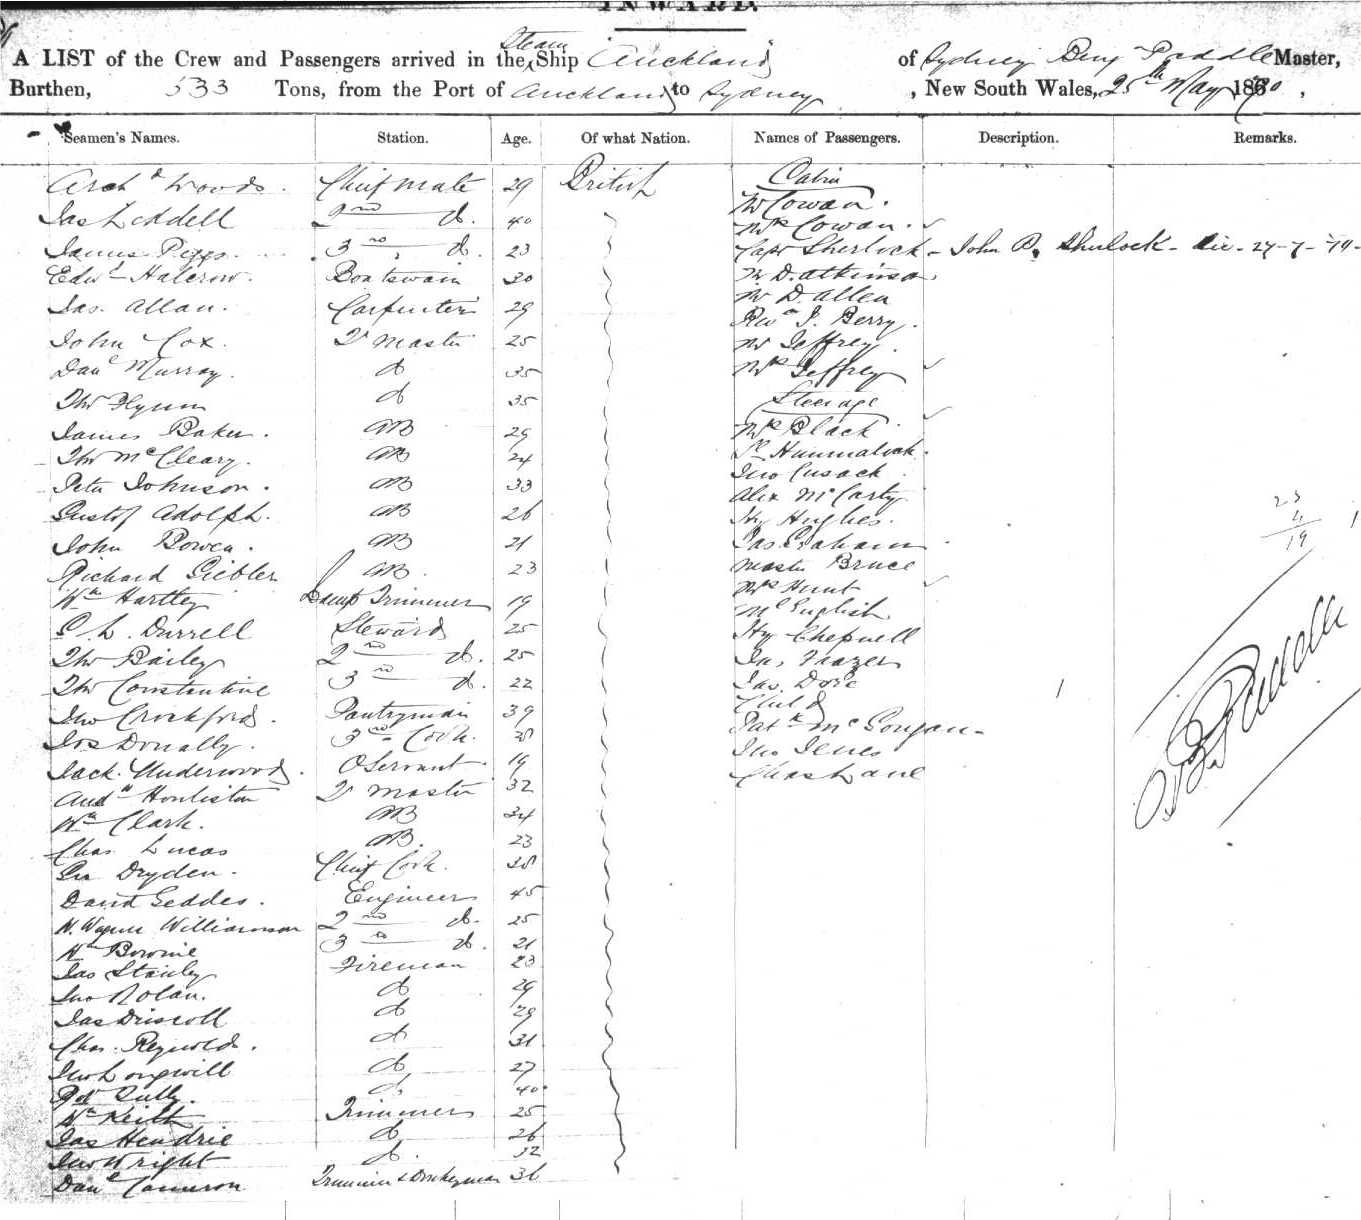 INWARD.
A LIST of the Crew and Passengers arrived in the Steam Ship "Auckland" of Sydney Benj Paddle Master,
Burthen, 533 Tons, from the Port of Auckland to Sydney, New South Wales, 25th May 1870,
Seamen's Names. Station. Age. Of what Nation. Names of Passengers. Description. Remarks.
Archd Woods. Chief Mate 29 British Cabin
Jas Liddell 2nd do. 40 Mr Cowan.
James Peggs. 3rd do. 23 Mrs Cowan.
Capt Sherlock - John Shulock - 27-7-
Edwd Halcrow. Boatswain 30 Mr D. Atkinson
Jas. Allan. Carpenter 29 Mr D. Allen
Revd J. Berry.
John Cox. Q Master 25 Mr Jeffrey.
Danl Murray. do 35 Mrs Jeffrey
Thos Flynn do 35 Steerage
James Baker. AB 29 Mrs Black
Thos McCleary. AB 24
Peter Johnson. AB 33 Jno Cusack
Gustof Adolph. AB 26 Alex McCarty
John Bowen. AB 21 Hy Hughes. 23
4
19
Richard Giebler AB. 23 Jas Graham
Master Bruce
Wm Hartley Lamp Trimmer 19 Mrs Hunt
McEnglish
S L. Durrell Steward 25 Hy Chepnell
Thos Bailey 2nd do. 25 Jas. Frazer
Thos Constantine 3rd do. 22 Jas. Dore
Child 1
Jno Crockford. Pantryman 39 Patk McGougan
Jos Donally. 3rd Cook. Jno Jenes
Jack Underwood. O Servant 19 Chas Lane
Andw Houliston Q Master 32
Wm Clark. AB 34
Chas Lucas AB. 23
Geo Dryden. Chief Cook. 38
David Geddes. Engineer 45
Williamson 2nd do. 25
Wm Bownie 3rd do. 21
Jas Stanley Fireman 23
Jno Nolan. do 29
Jas Driscoll do 29
Chas. Reynolds. do 31
Jno Longwill do 27
Robt Tully. do 40
Wm Keith Trimmer 25
Jas Hendrie do 26
Jno Wright do. 32
Danl Cameron Trimmer & Donkeyman 36
B Paddle